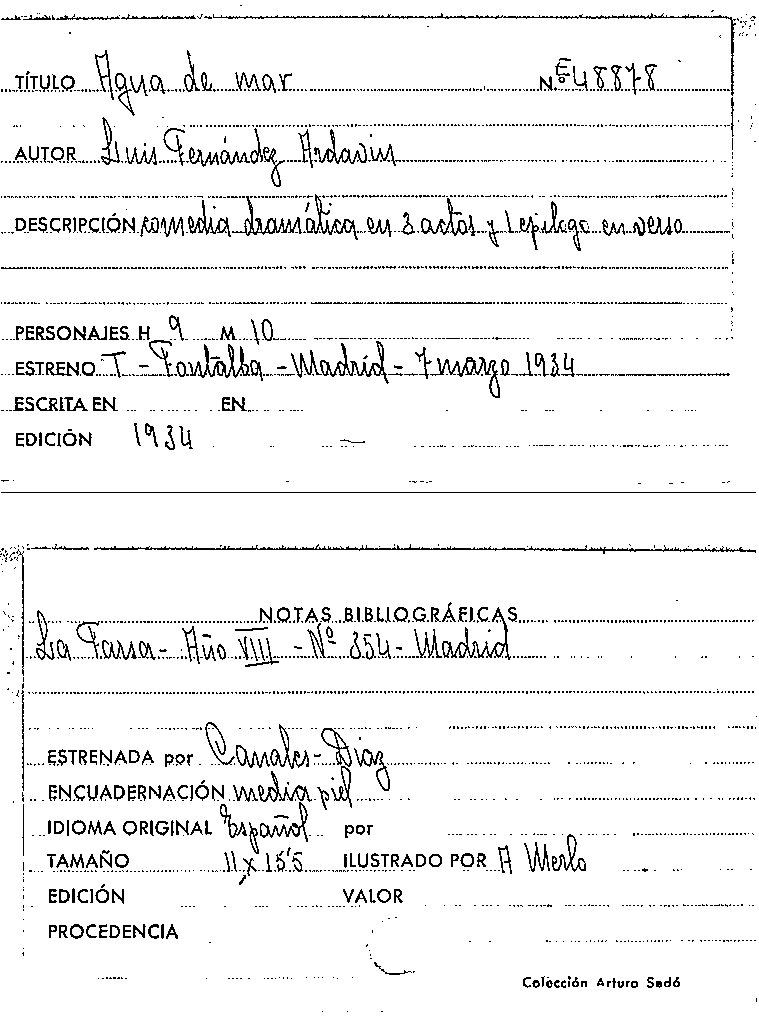 TÍTULO Agua de mar Nº E-48878
AUTOR Luis Fernández Ardavin
DESCRIPCIÓN comedia dramática en 3 actos y 1 epilogo en verso
PERSONAJES H 9 M 10
ESTRENO T - Fontalba - Madrid - 7 marzo 1934
ESCRITA EN EN
EDICIÓN 1934
NOTAS BIBLIOGRÁFICAS
La Farsa - Año VIII - Nº 354 - Madrid
ESTRENADA por Canales - Diaz
ENCUADERNACIÓN media piel
IDIOMA ORIGINAL Español por
TAMAÑO 11 x 15'5 ILUSTRADO POR A Merlo
EDICIÓN VALOR
PROCEDENCIA
Colección Arturo Sedó